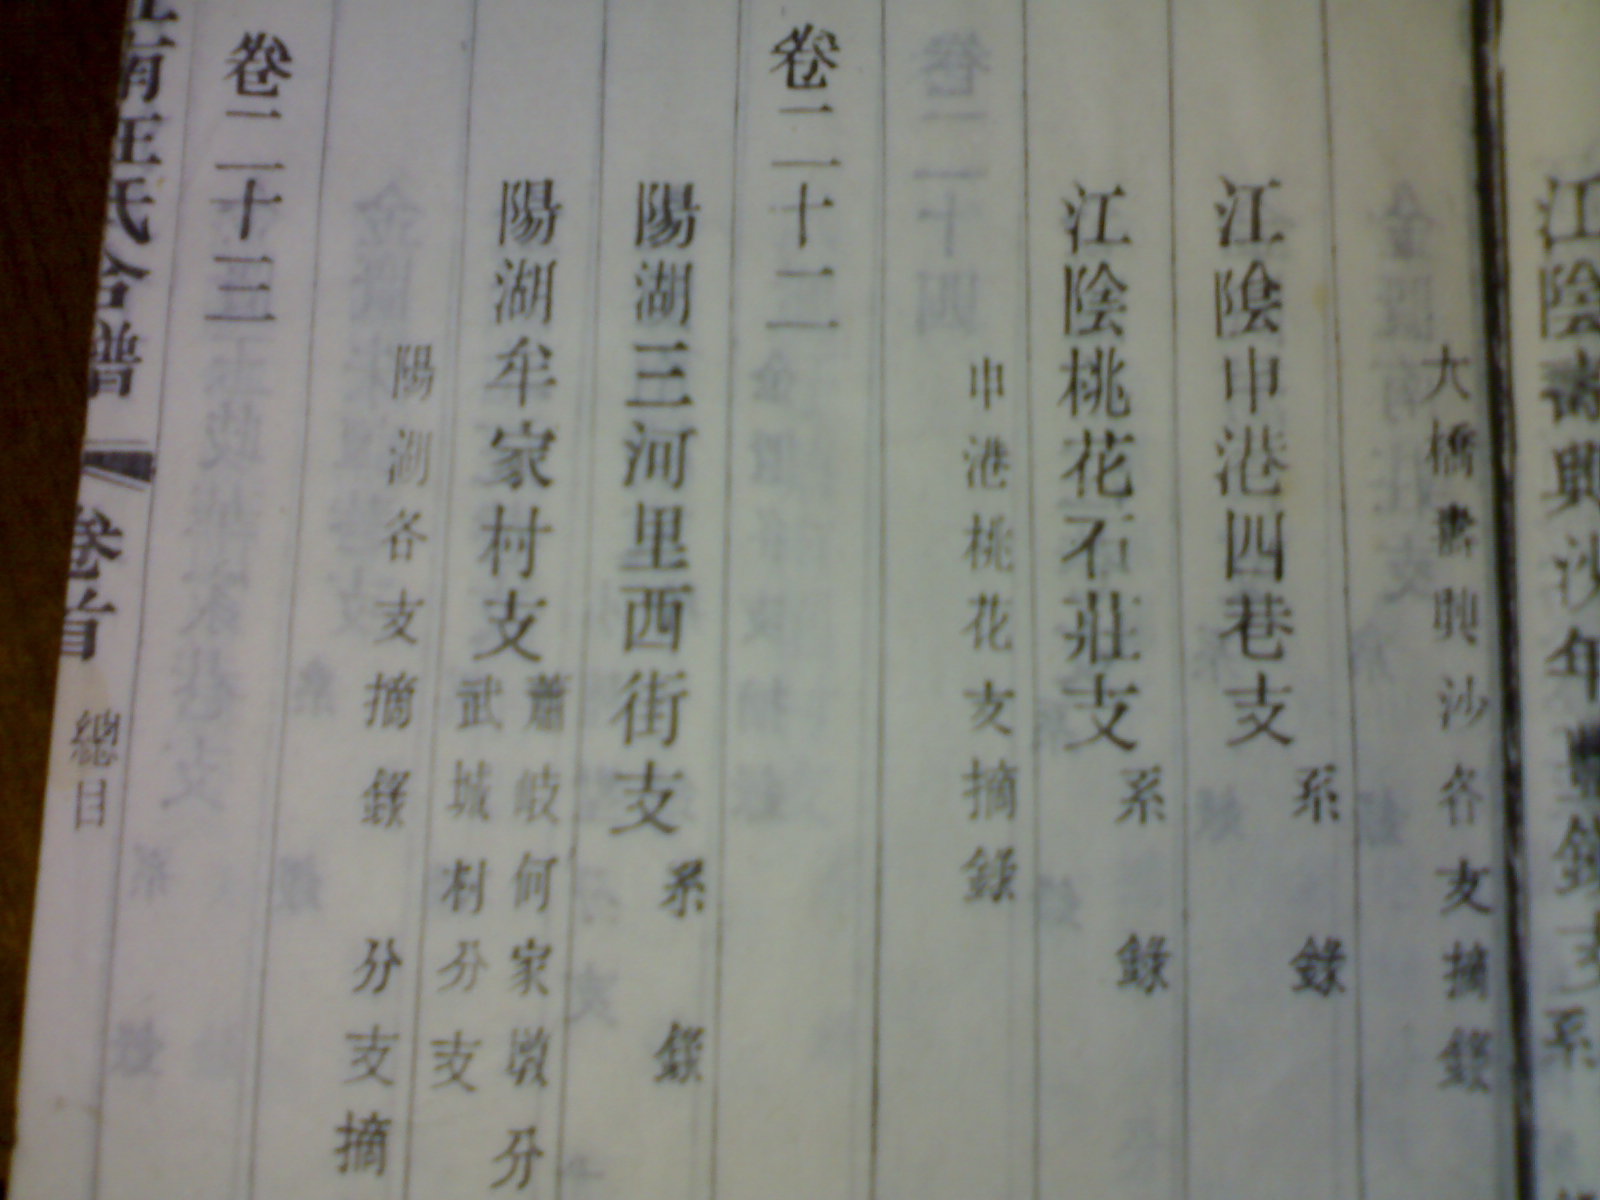 江陰
沙年豐鎮支
系
大橋壽興沙各支摘錄
江陰申港四巷支 系錄
江陰桃花石莊支 系錄
申港桃花支摘錄
卷二十二
陽湖三河里西街支 系錄
陽湖牟家村支
蕭岐何家墩分
武城村分支
陽湖各支摘錄 分支摘
卷二十三
江南汪氏合譜 卷首 總目